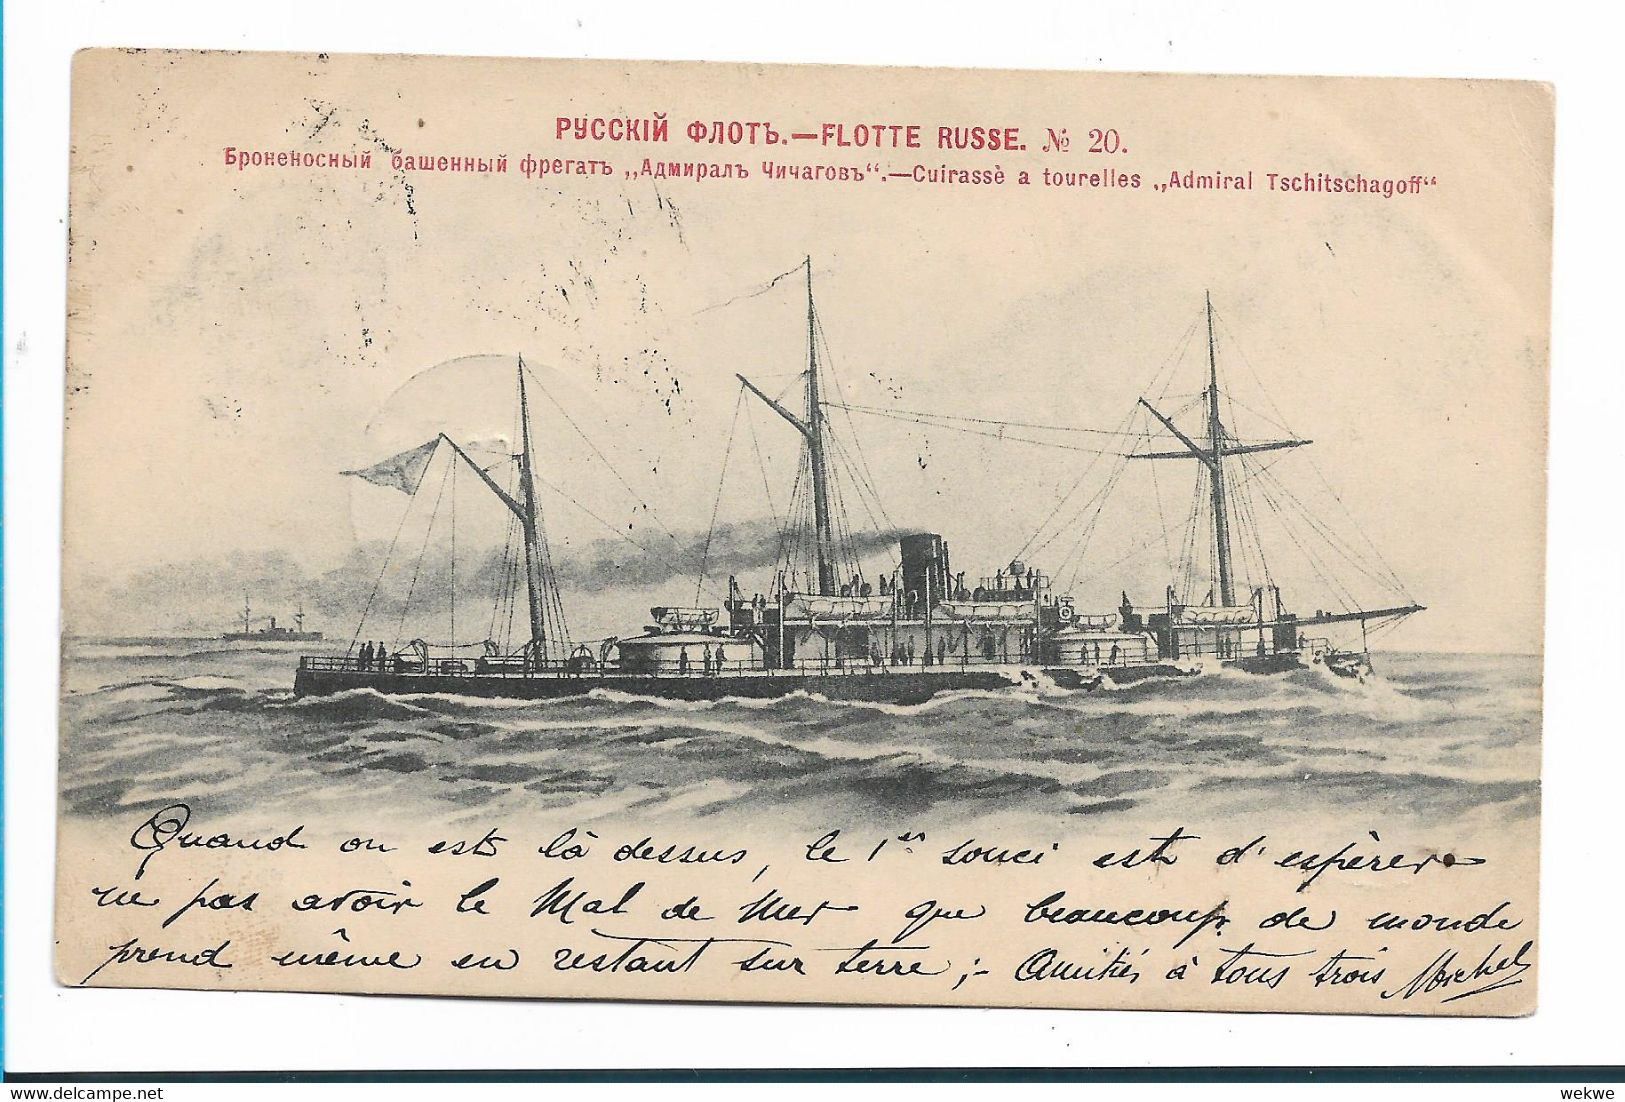 РУССКІЙ ФЛОТЪ.—FLOTTE RUSSE. № 20.
Броненосный башенный фрегатъ „Адмиралъ Чичаговъ“.—Cuirassè a tourelles „Admiral Tschitschagoff“
Quand on est là dessus, le 1er souci est d'espérer
ne pas avoir le Mal de Mer que beaucoup de monde
prend même en restant sur terre ;- Amitiés à tous trois Michel
wekwe